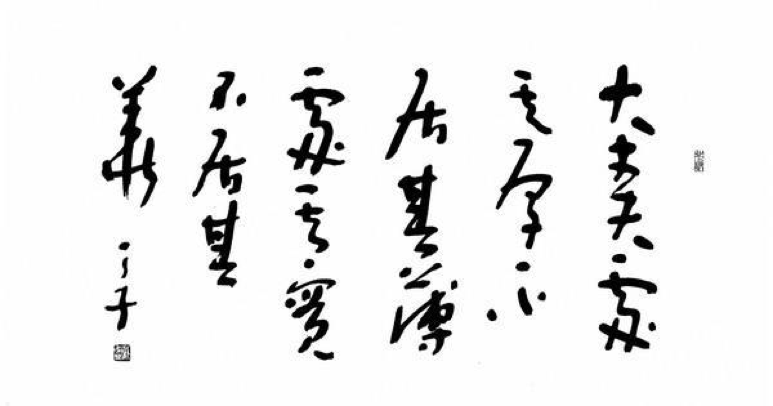 大丈夫處
其厚不
居其薄
處其實
不居其
華